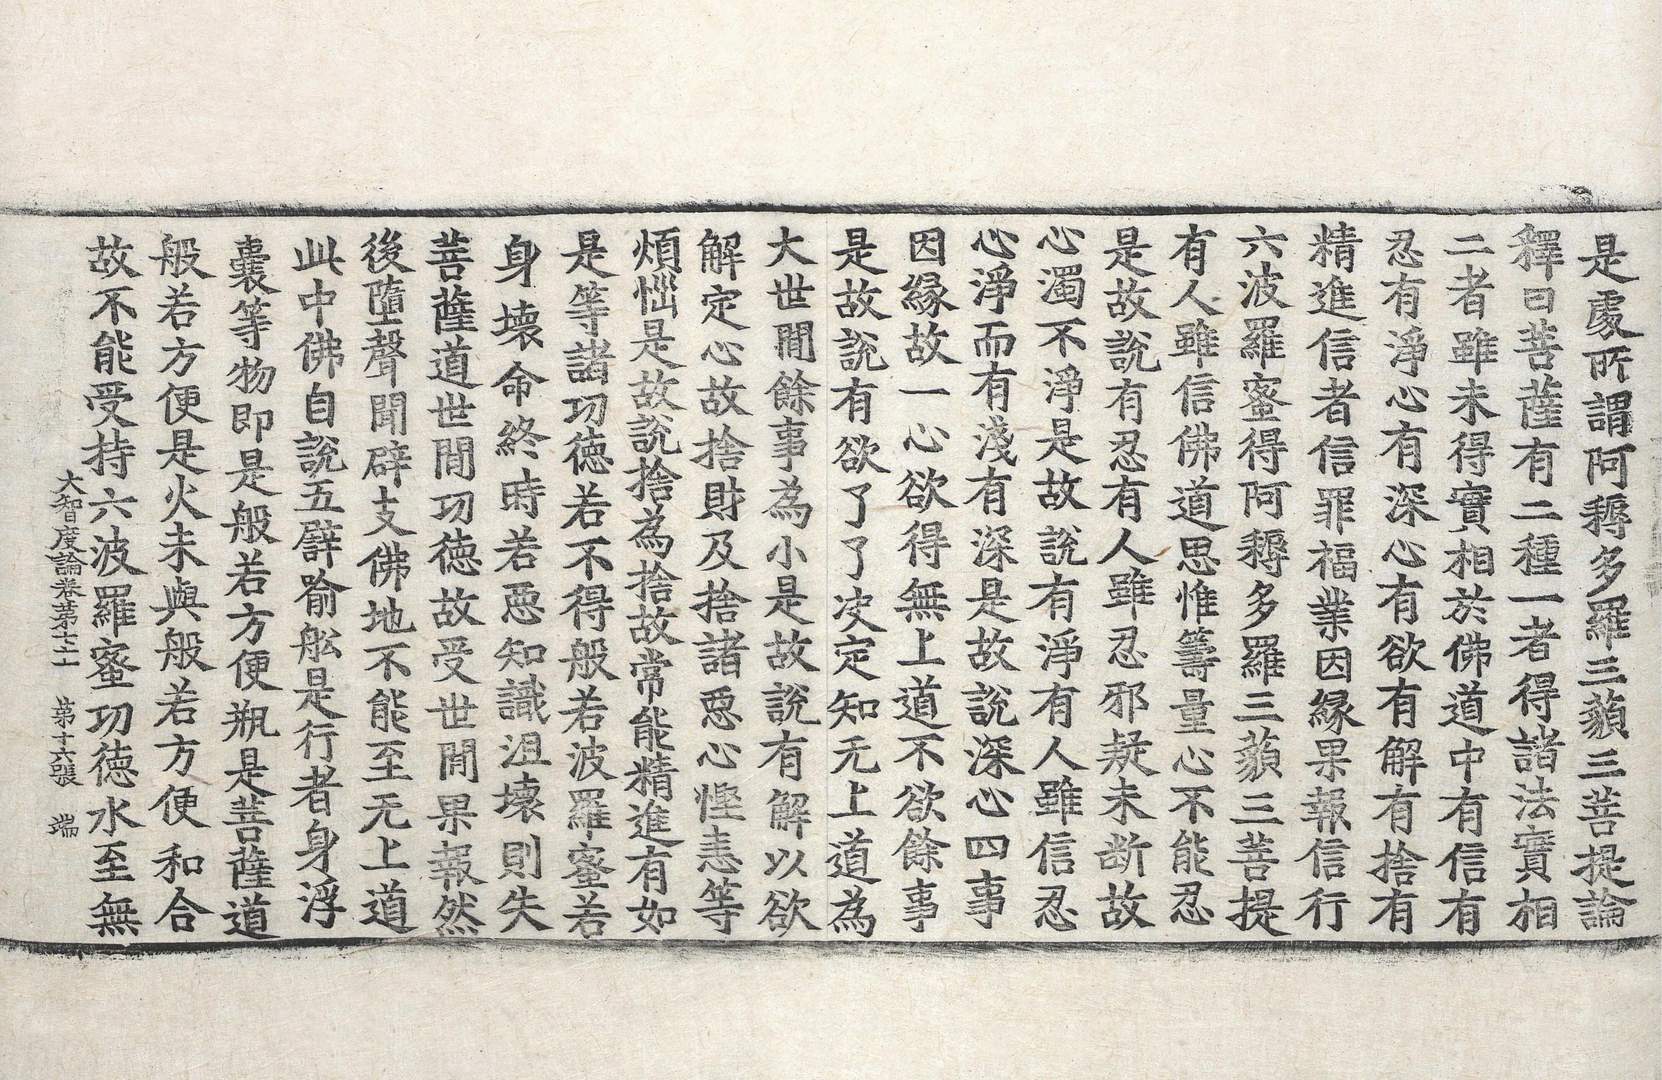 是處所謂阿耨多羅三藐三菩提論
釋曰菩薩有二種一者得諸法實相
二者雖未得實相於佛道中有信有
忍有淨心有深心有欲有解有捨有
精進信者信罪福業因緣果報信行
六波羅蜜得阿耨多羅三藐三菩提
有人雖信佛道思惟籌量心不能忍
是故說有忍有人雖忍邪疑未斷故
心濁不淨是故說有淨有人雖信忍
心淨而有淺有深是故說深心四事
因緣故一心欲得無上道不欲餘事
是故說有欲了了決定知无上道為
大世間餘事為小是故說有解以欲
解定心故捨財及捨諸惡心慳恚等
煩惱是故說捨為捨故常能精進有如
是等諸功德若不得般若波羅蜜若
身壞命終時若惡知識沮壞則失
菩薩道世間功德故受世間果報然
後墮聲聞辟支佛地不能至无上道
此中佛自說五譬喻舩是行者身浮
囊等物即是般若方便瓶是菩薩道
般若方便是火未與般若方便和合
故不能受持六波羅蜜功德水至無
大智度論卷第七十一 第十六張 端